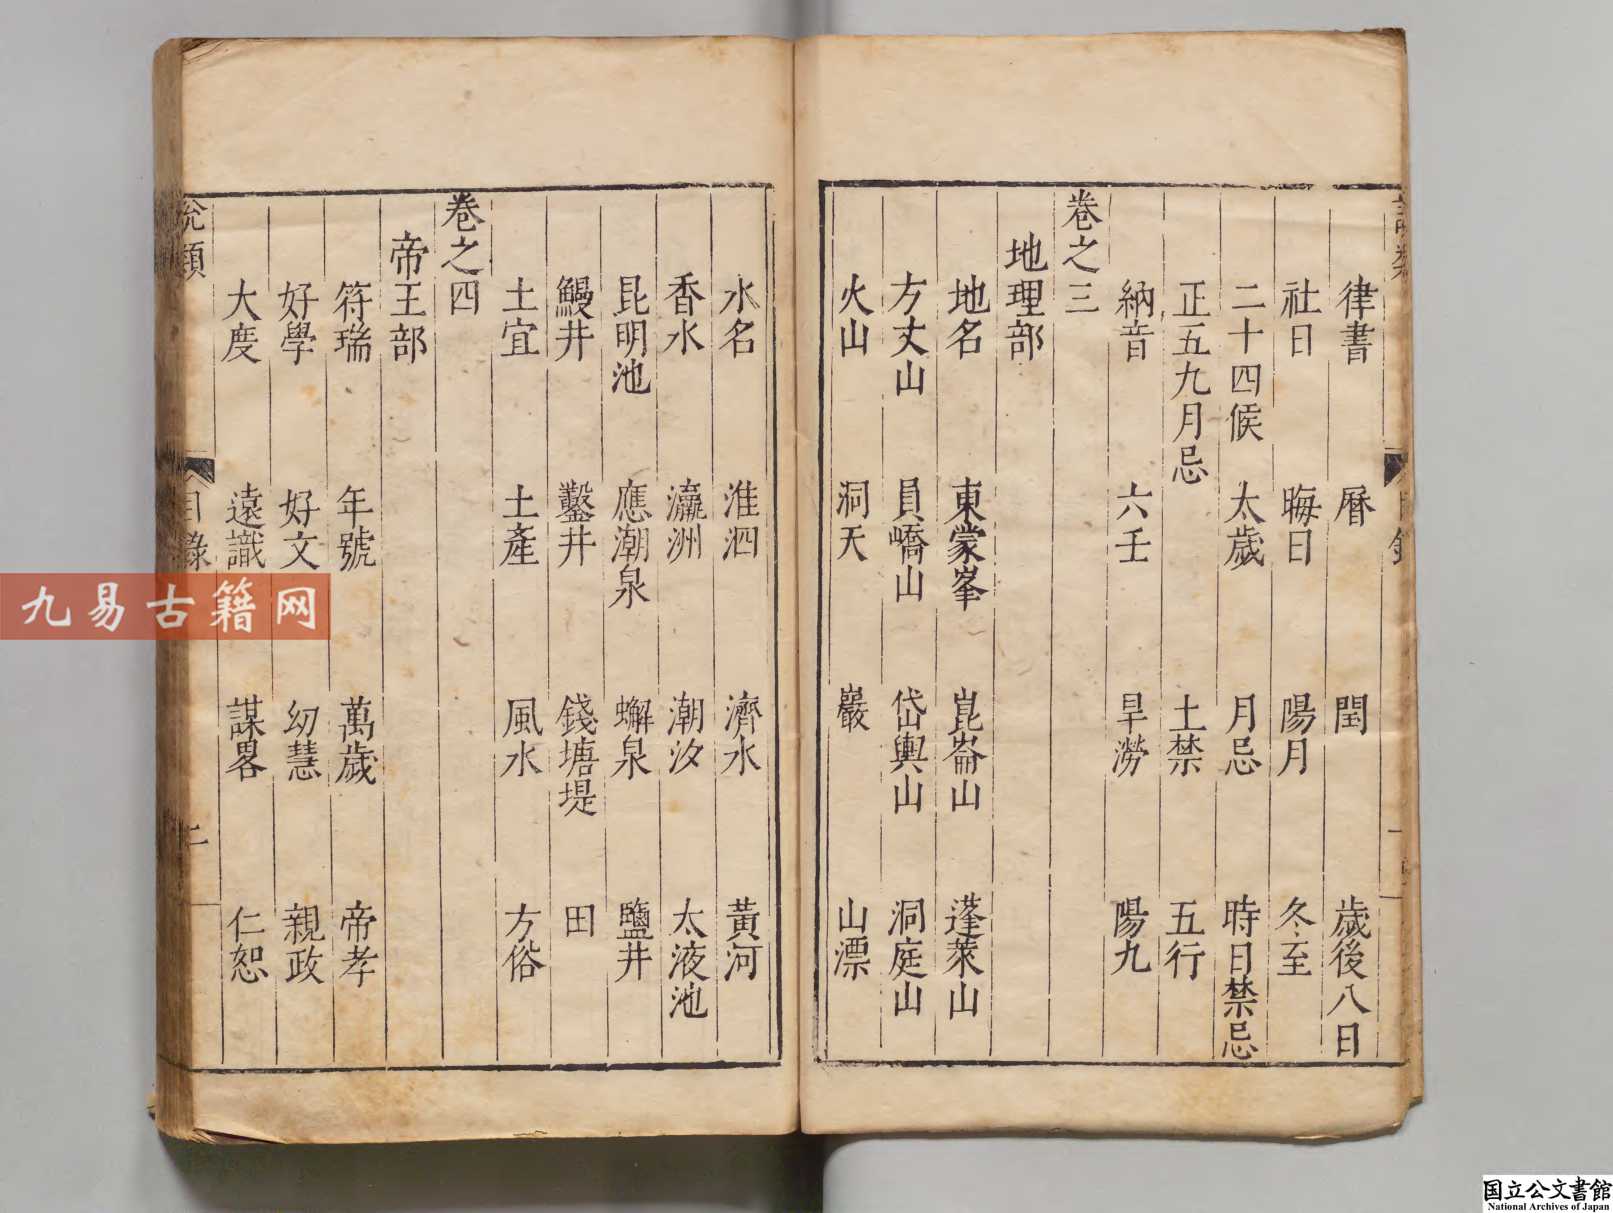 律書 曆 閏 歲後八日
社日 晦日 陽月 冬至
二十四候 太歲 月忌 時日禁忌
正五九月忌 土禁 五行
納音 六壬 旱澇 陽九
卷之三
地理部
地名 東蒙峯 崑崙山 蓬萊山
方丈山 員嶠山 岱輿山 洞庭山
火山 洞天 巖 山漂
水名 淮泗 濟水 黃河
香水 瀛洲 潮汐 太液池
昆明池 應潮泉 蠏泉 鹽井
鰻井 鑿井 錢塘堤 田
土宜 土產 風水 方俗
卷之四
帝王部
符瑞 年號 萬歲 帝孝
好學 好文 幼慧 親政
大度 遠識 謀畧 仁恕
說類 目錄 二
九易古籍网
国立公文書館
National Archives of Japan